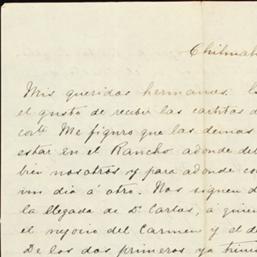 Chihuah
Mis queridos hermanos:
el gusto de recibir las cartitas d
corte Me figuro que las demas
estar en el Rancho adonde de
bien nosotros y para adonde co
un dia á otro. Nos siguen d
la llegada de Dn Carlos, á quien
el negocio del Carmen y el d
De los dos primeros ya